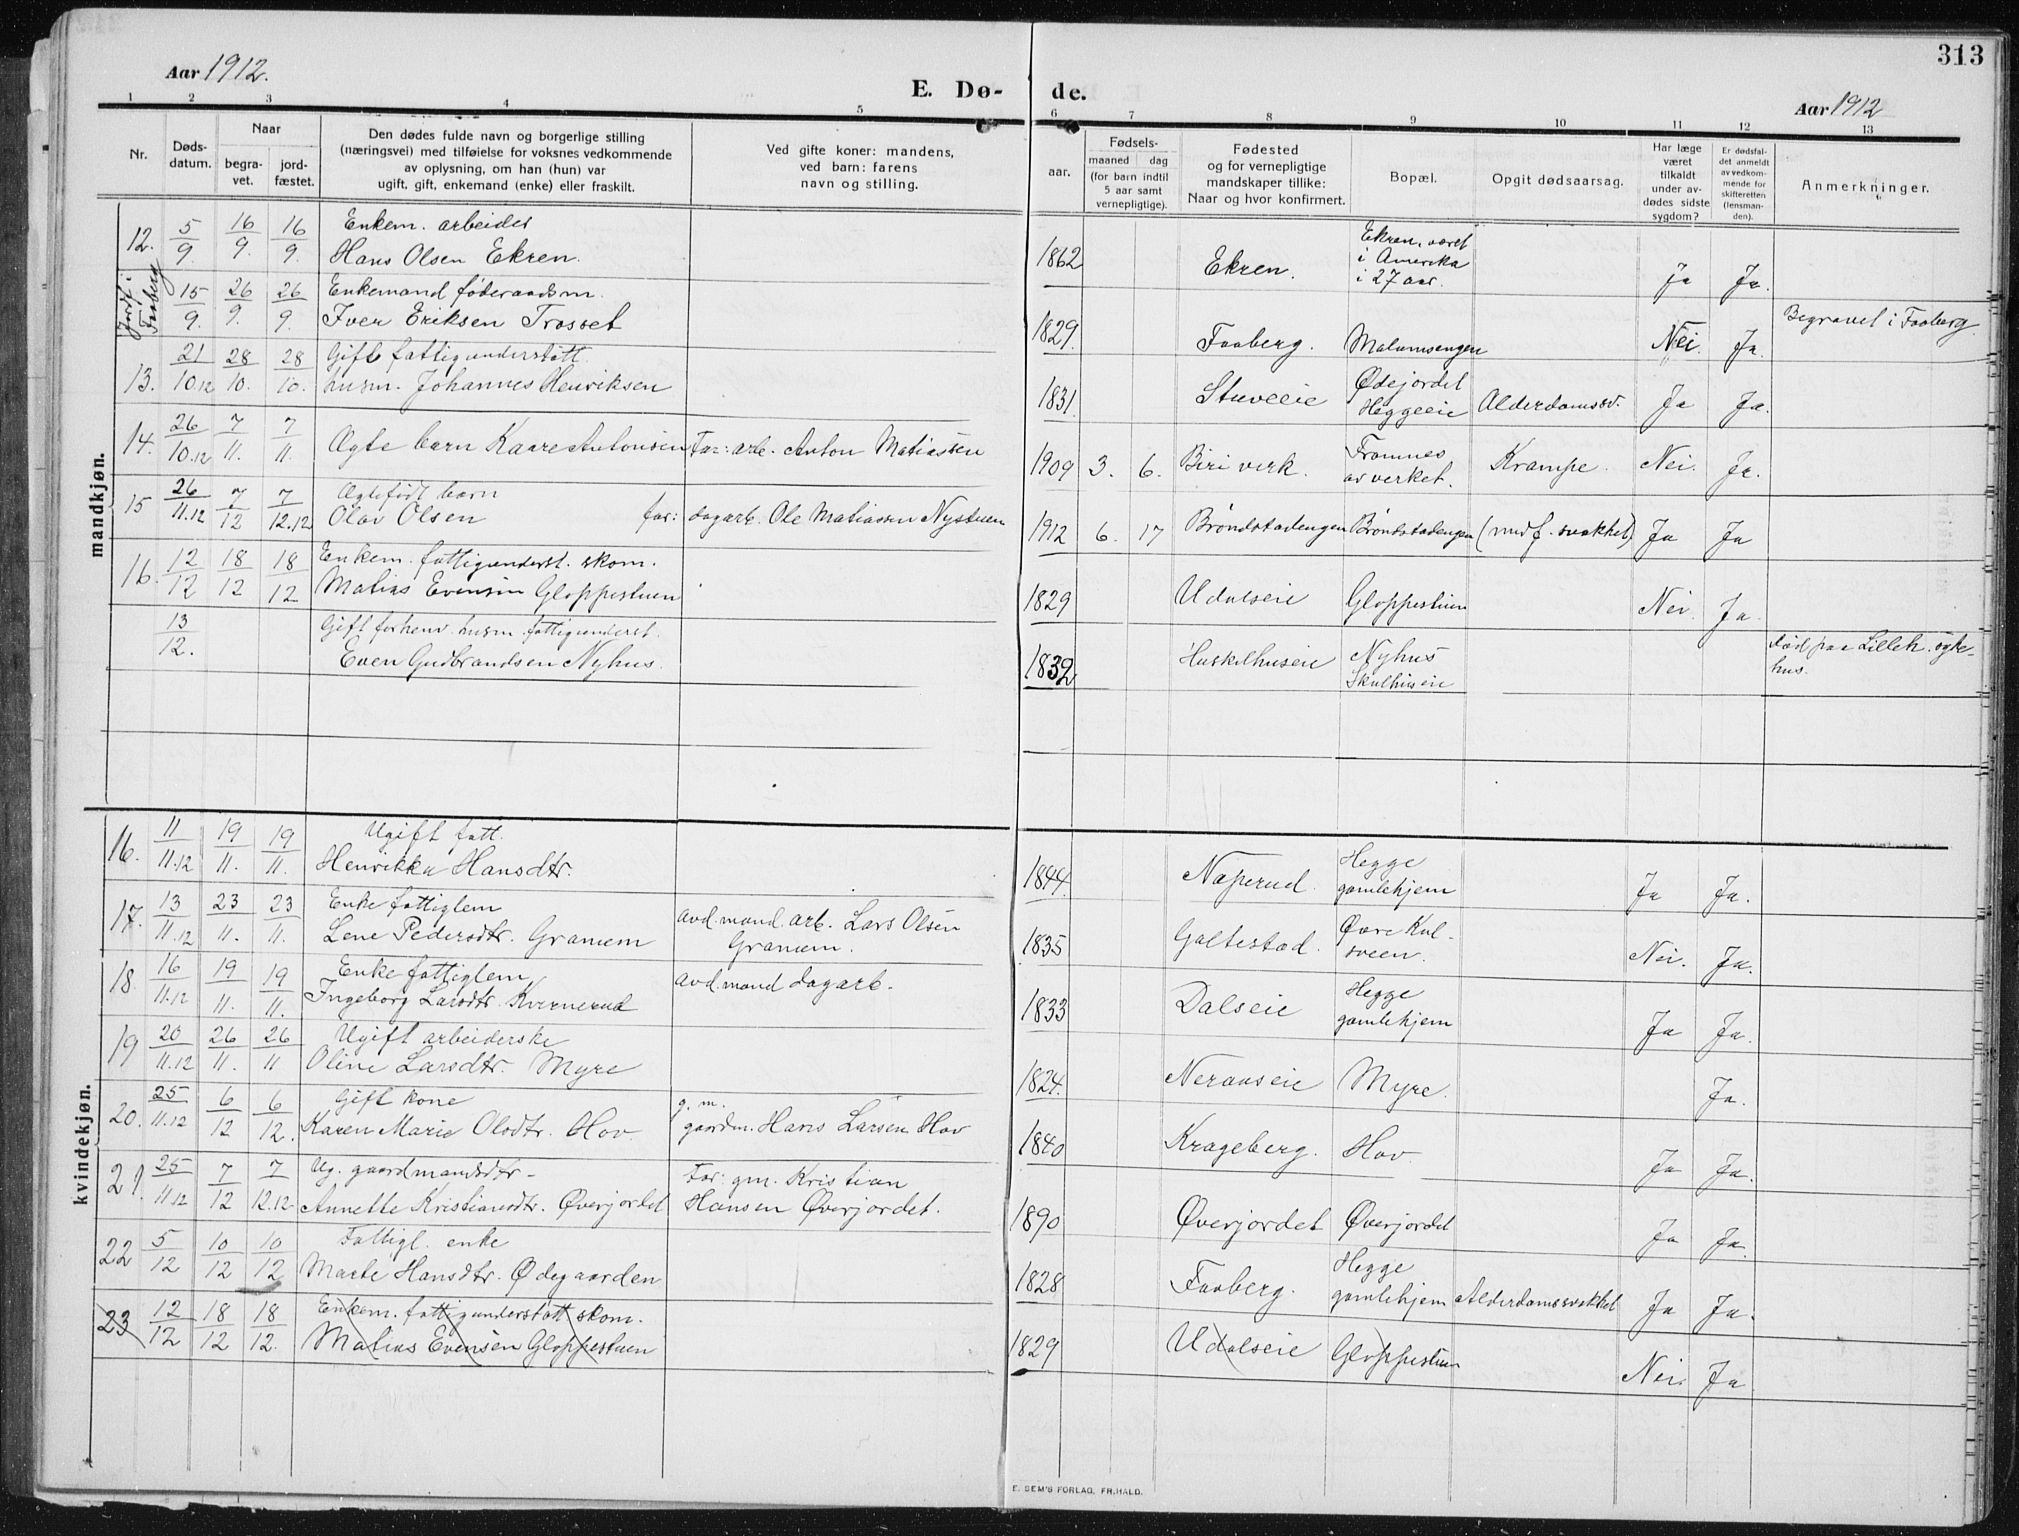 Aar 1912.
E. Dø-
de.
Aar 1912
313
1 2 3 4 5 6 7 8 9 10 11 12 13
Nr.
Døds-
datum.
Naar
begra-
vet.
jord-
fæstet.
Den dødes fulde navn og borgerlige stilling
(næringsvei) med tilføielse for voksnes vedkommende
av oplysning, om han (hun) var
ugift, gift, enkemand (enke) eller fraskilt.
Ved gifte koner: mandens,
ved barn: farens
navn og stilling.
aar.
Fødsels-
maaned dag
(for barn indtil
5 aar samt
vernepligtige).
Fødested
og for vernepligtige
mandskaper tillike:
Naar og hvor konfirmert.
Bopæl.
Opgit dødsaarsag.
Har læge
været
tilkaldt
under av-
dødes sidste
sygdom?
Er dødsfal-
det anmeldt
av vedkom-
mende for
skifteretten
(lensman-
den).
Anmerkninger.
mandkjøn.
12. 5/9 16/9. 16/9. Enkem. arbeider
Hans Olsen Ekren.
1862 Ekren. Ekren, været
i Amerika
i 27 aar. Ja Ja.
Jordf. i
Faaberg
15/9. 26/9. 26/9. Enkemand føderaadsm.
Iver Eriksen Trosset
1829. Faaberg. Malumsengen Nei. Ja. Begravet i Faaberg.
13. 21/10.12 28/10. 28/10. Gift fattigunderstøtt.
husm. Johannes Henriksen
1831. Stuveeie Ødejordet
Heggeeie Alderdomssv. Ja Ja.
14. 26/10.12 7/11. 7/11. Ægte barn Kaare Antonsen Far: arb. Anton Matiassen
1909 3. 6. Biri verk. Framnes
av verket. Krampe. Nei. Ja.
15 26/11.12 7/12 7/12.12 Ægtefødt barn
Olav Olsen far: dagarb. Ole Matiassen Nystuen
1912 6. 17 Brøndstadengen Brøndstadengen (medf. svakhet) Ja Ja
16. 12/12 18/12 18/12 Enkem. fattigunderst. skom.
Matias Evensen Gloppestuen
1829 Udalseie Gloppestuen Nei. Ja.
13/12. Gift forhenv. husm. fattigunderst.
Even Gudbrandsen Nyhus.
1832 Huskelhuseie Nyhus
Skulhuseie død paa Lilleh. syke-
hus.
kvindekjøn.
16. 11/11.12 19/11. 19/11. Ugift fatt.
Henrikka Hansdtr.
1844. Naperud. Hegge
gamlehjem Ja Ja.
17. 13/11.12 23/11. 23/11. Enke fattiglem
Lene Pedersdtr. Granum avd. mand. arb. Lars Olsen
Granum.
1835 Galtestad. Øvre Kul-
sveen. Nei. Ja.
18. 16/11.12 19/11. 19/11. Enke fattiglem
Ingeborg Larsdtr. Kvernerud avd. mand dagarb.
1833 Dalseie Hegge
gamlehjem Ja Ja.
19 20/11.12 26/11. 26/11 Ugift arbeiderske
Oline Larsdtr. Myre
1824. Neraaseie Myre. Ja.
20. 25/11.12 6/12 6/12. Gift kone
Karen Marie Olsdtr. Hov g. m.
gaardm. Hans Larsen Hov
1840 Krageberg. Hov. Ja Ja.
21. 25/11.12 7/12 7/12.12 Ug. gaardmandsdtr-
Annette Kristiansdtr. Øverjordet Far: gm. Kristian
Hansen Øverjordet.
1890 Øverjordet Øverjordet Ja Ja.
22 5/12 10/12 10/12 Fattigl. enke
Marte Hansdtr. Ødegaarden
1828 Faaberg. Hegge
gamlehjem Alderdomssvakhet Ja Ja.
23 12/12 18/12 18/12. Enkem. fattigunderstøtt skom.
Matias Evensen Gloppestuen
1829 Udalseie Gloppestuen Nei. Ja
E. SEM'S FORLAG, FR.HALD.